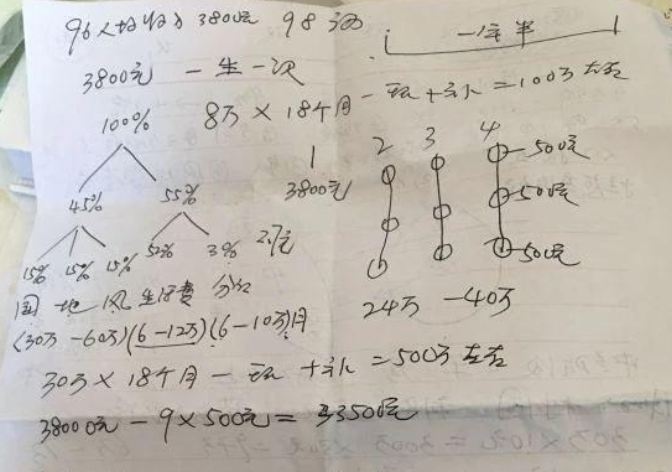 96人均收入3800元 98
一年半
3800元 一生一次
8万×18个月 - 税+补=100万左右
100%
3800元
2 3 4
500元
500元
500元
45% 55%
15% 15% 15% 52% 3%
国 地 风 生活费
24万-40万
(30万-60万)(6-12万)(6-10万)月
30万×18个月-税+补=500万左右
38000元-9×500元=33500元